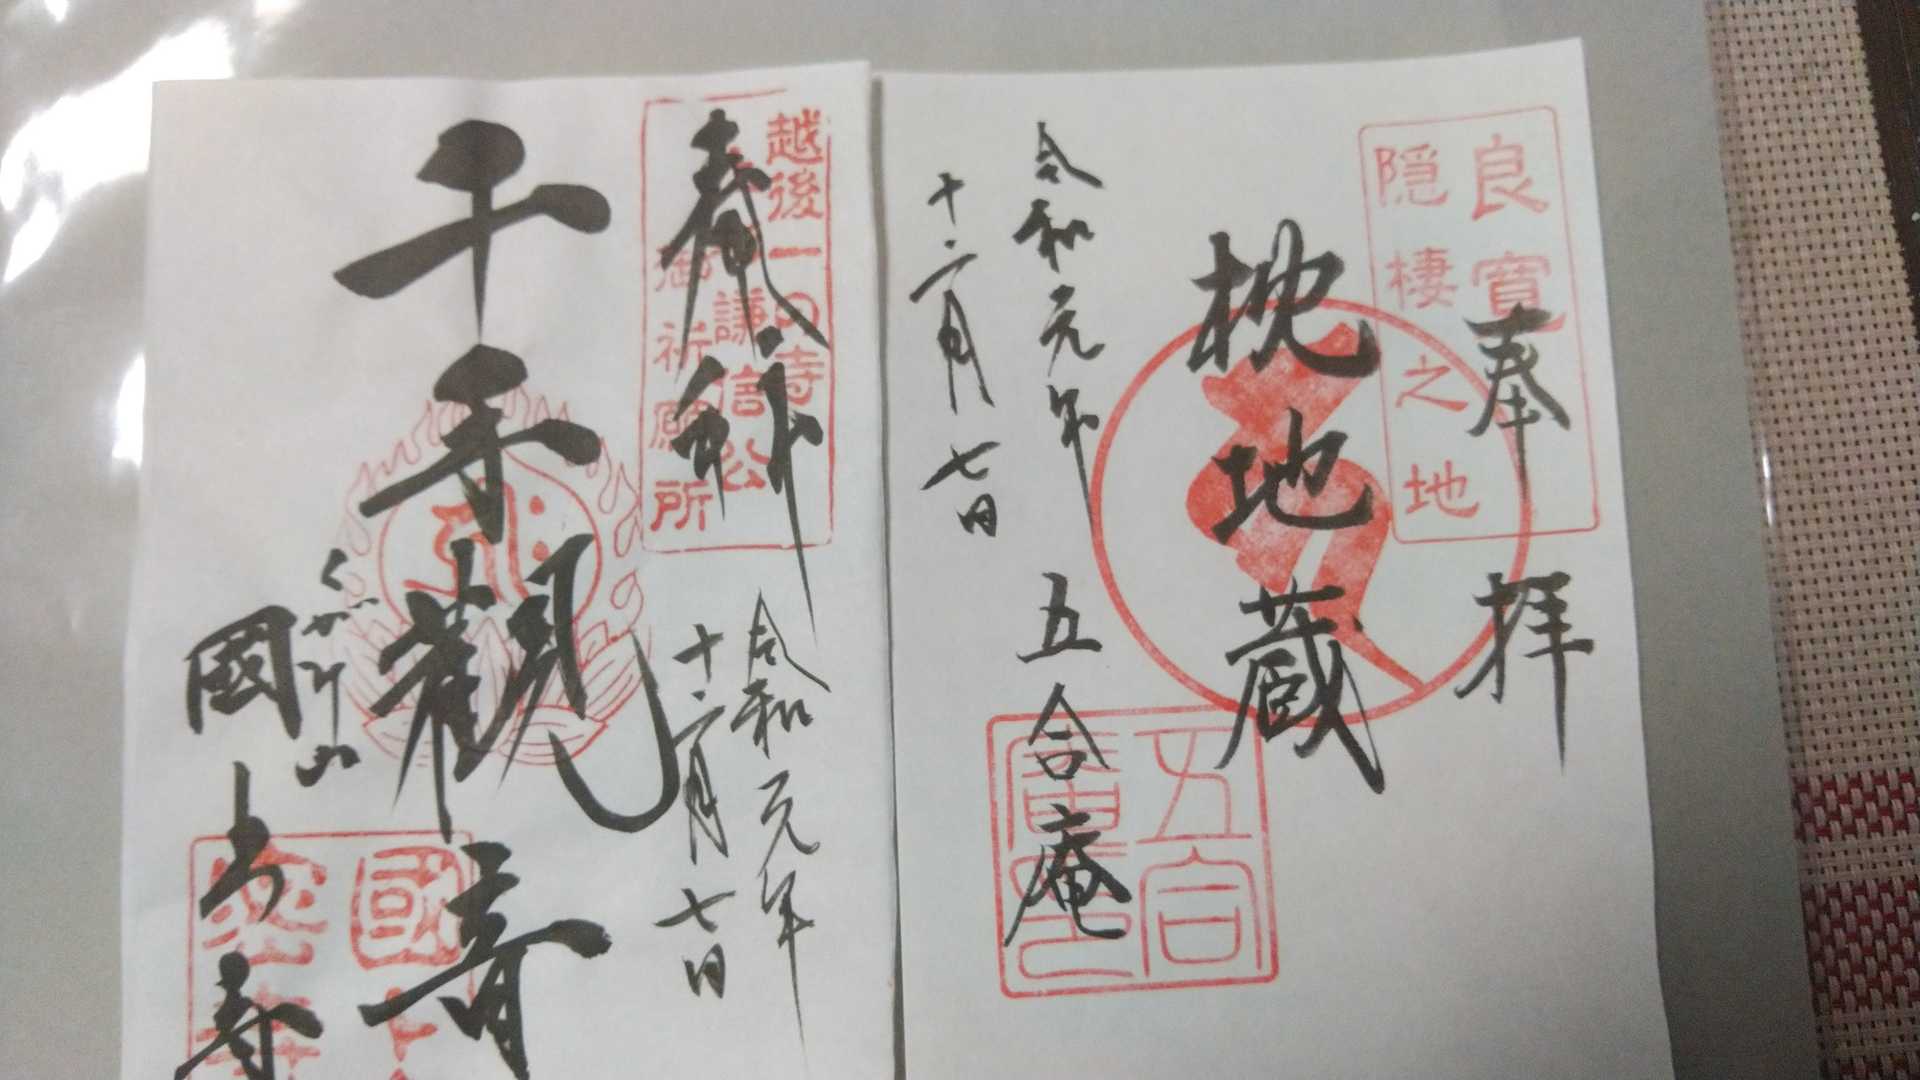 奉拝
良寛
隠棲之地
枕地蔵
令和元年
十二月七日
五合庵
五合
庵印
奉拝
越後一の寺
謙信公
御祈願所
令和元年
十二月七日
千手観音
くがみ山
國上寺